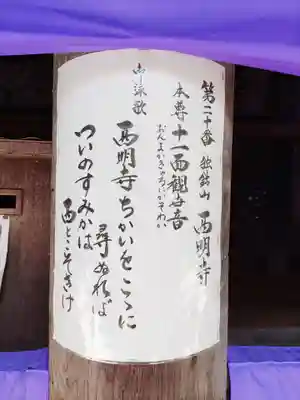 第二十番 独鈷山 西明寺
本尊十一面観世音
おんまかきゃろにかそわか
御詠歌
西明寺ちかいをここに
尋ぬれば
ついのすみかは
西とこそきけ